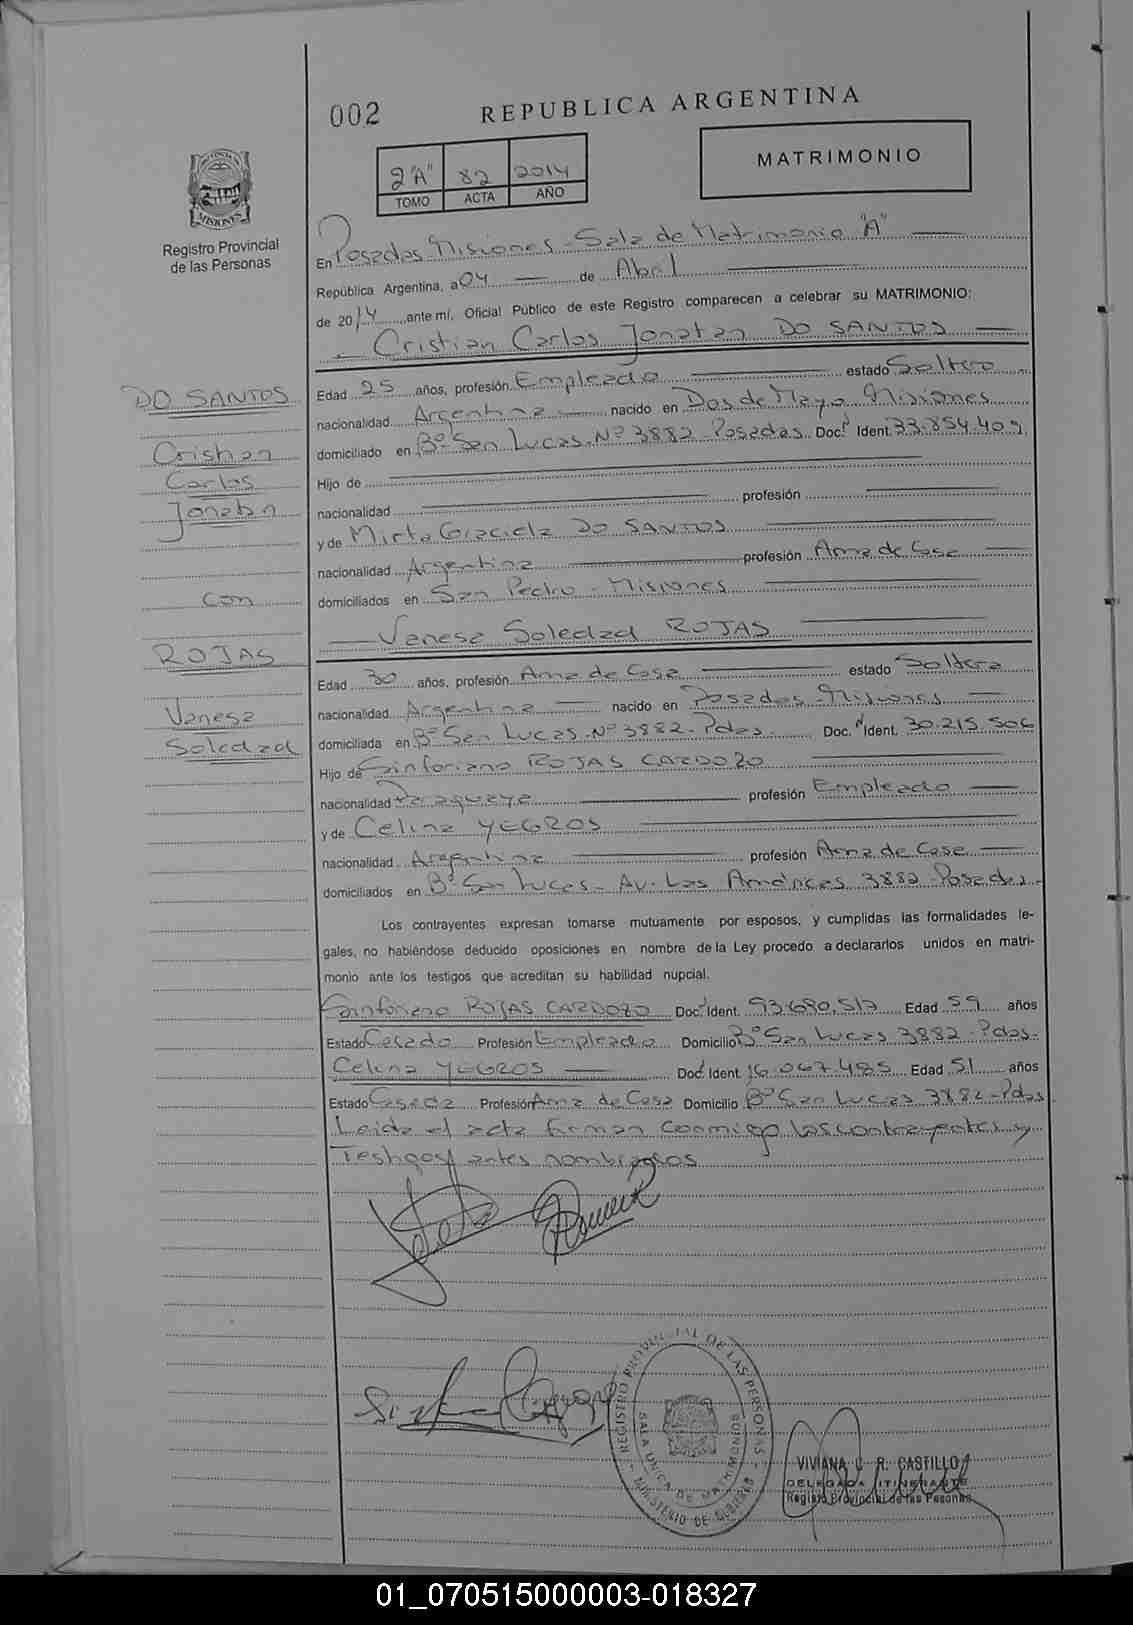 002
REPUBLICA ARGENTINA
2"A" 82 2014
TOMO ACTA AÑO
MATRIMONIO
PROVINCIA
MISIONES
Registro Provincial
de las Personas
En Posadas Misiones - Sala de Matrimonio "A"
República Argentina, a 04 de Abril
de 2014 ante mí, Oficial Público de este Registro comparecen a celebrar su MATRIMONIO:
Cristian Carlos Jonatan DO SANTOS
Edad 25 años, profesión Empleado estado Soltero
nacionalidad Argentina nacido en Dos de Mayo Misiones
domiciliado en Bº San Lucas Nº 3882 Posadas Doc. Ident. 33.854.409
Hijo de
nacionalidad profesión
y de Mirta Graciela DO SANTOS
nacionalidad Argentina profesión Ama de Casa
domiciliados en San Pedro - Misiones
Vanesa Soledad ROJAS
Edad 30 años, profesión Ama de Casa estado Soltera
nacionalidad Argentina nacido en Posadas - Misiones
domiciliada en Bº San Lucas Nº 3882 - Pdas. Doc. Ident. 30.215.506
Hijo de Sinforiano ROJAS CARDOZO
nacionalidad Paraguaya profesión Empleado
y de Celina YEGROS
nacionalidad Argentina profesión Ama de Casa
domiciliados en Bº San Lucas - Av. Las Américas 3882 - Posadas -
DO SANTOS
Cristian
Carlos
Jonatan
con
ROJAS
Vanesa
Soledad
Los contrayentes expresan tomarse mutuamente por esposos, y cumplidas las formalidades le-
gales, no habiéndose deducido oposiciones en nombre de la Ley procedo a declararlos unidos en matri-
monio ante los testigos que acreditan su habilidad nupcial.
Sinforiano ROJAS CARDOZO Doc. Ident. 93.690.517 Edad 59 años
Estado Casado Profesión Empleado Domicilio Bº San Lucas 3882 - Pdas.
Celina YEGROS Doc. Ident. 16.067.485 Edad 51 años
Estado Casada Profesión Ama de Casa Domicilio Bº San Lucas 3882 - Pdas
Leida el acta firman conmigo los contrayentes y
Testigos antes nombrados
REGISTRO PROVINCIAL DE LAS PERSONAS
SALA UNICA DE MATRIMONIOS
MINISTERIO DE GOBIERNO
VIVIANA C. R. CASTILLO
DELEGADA ITINERANTE
Registro Provincial de las Personas
01_070515000003-018327